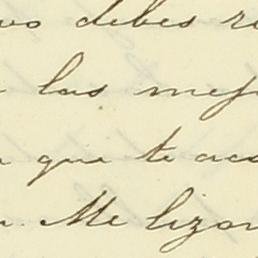 debes
las mej
que te aco
Me lizon